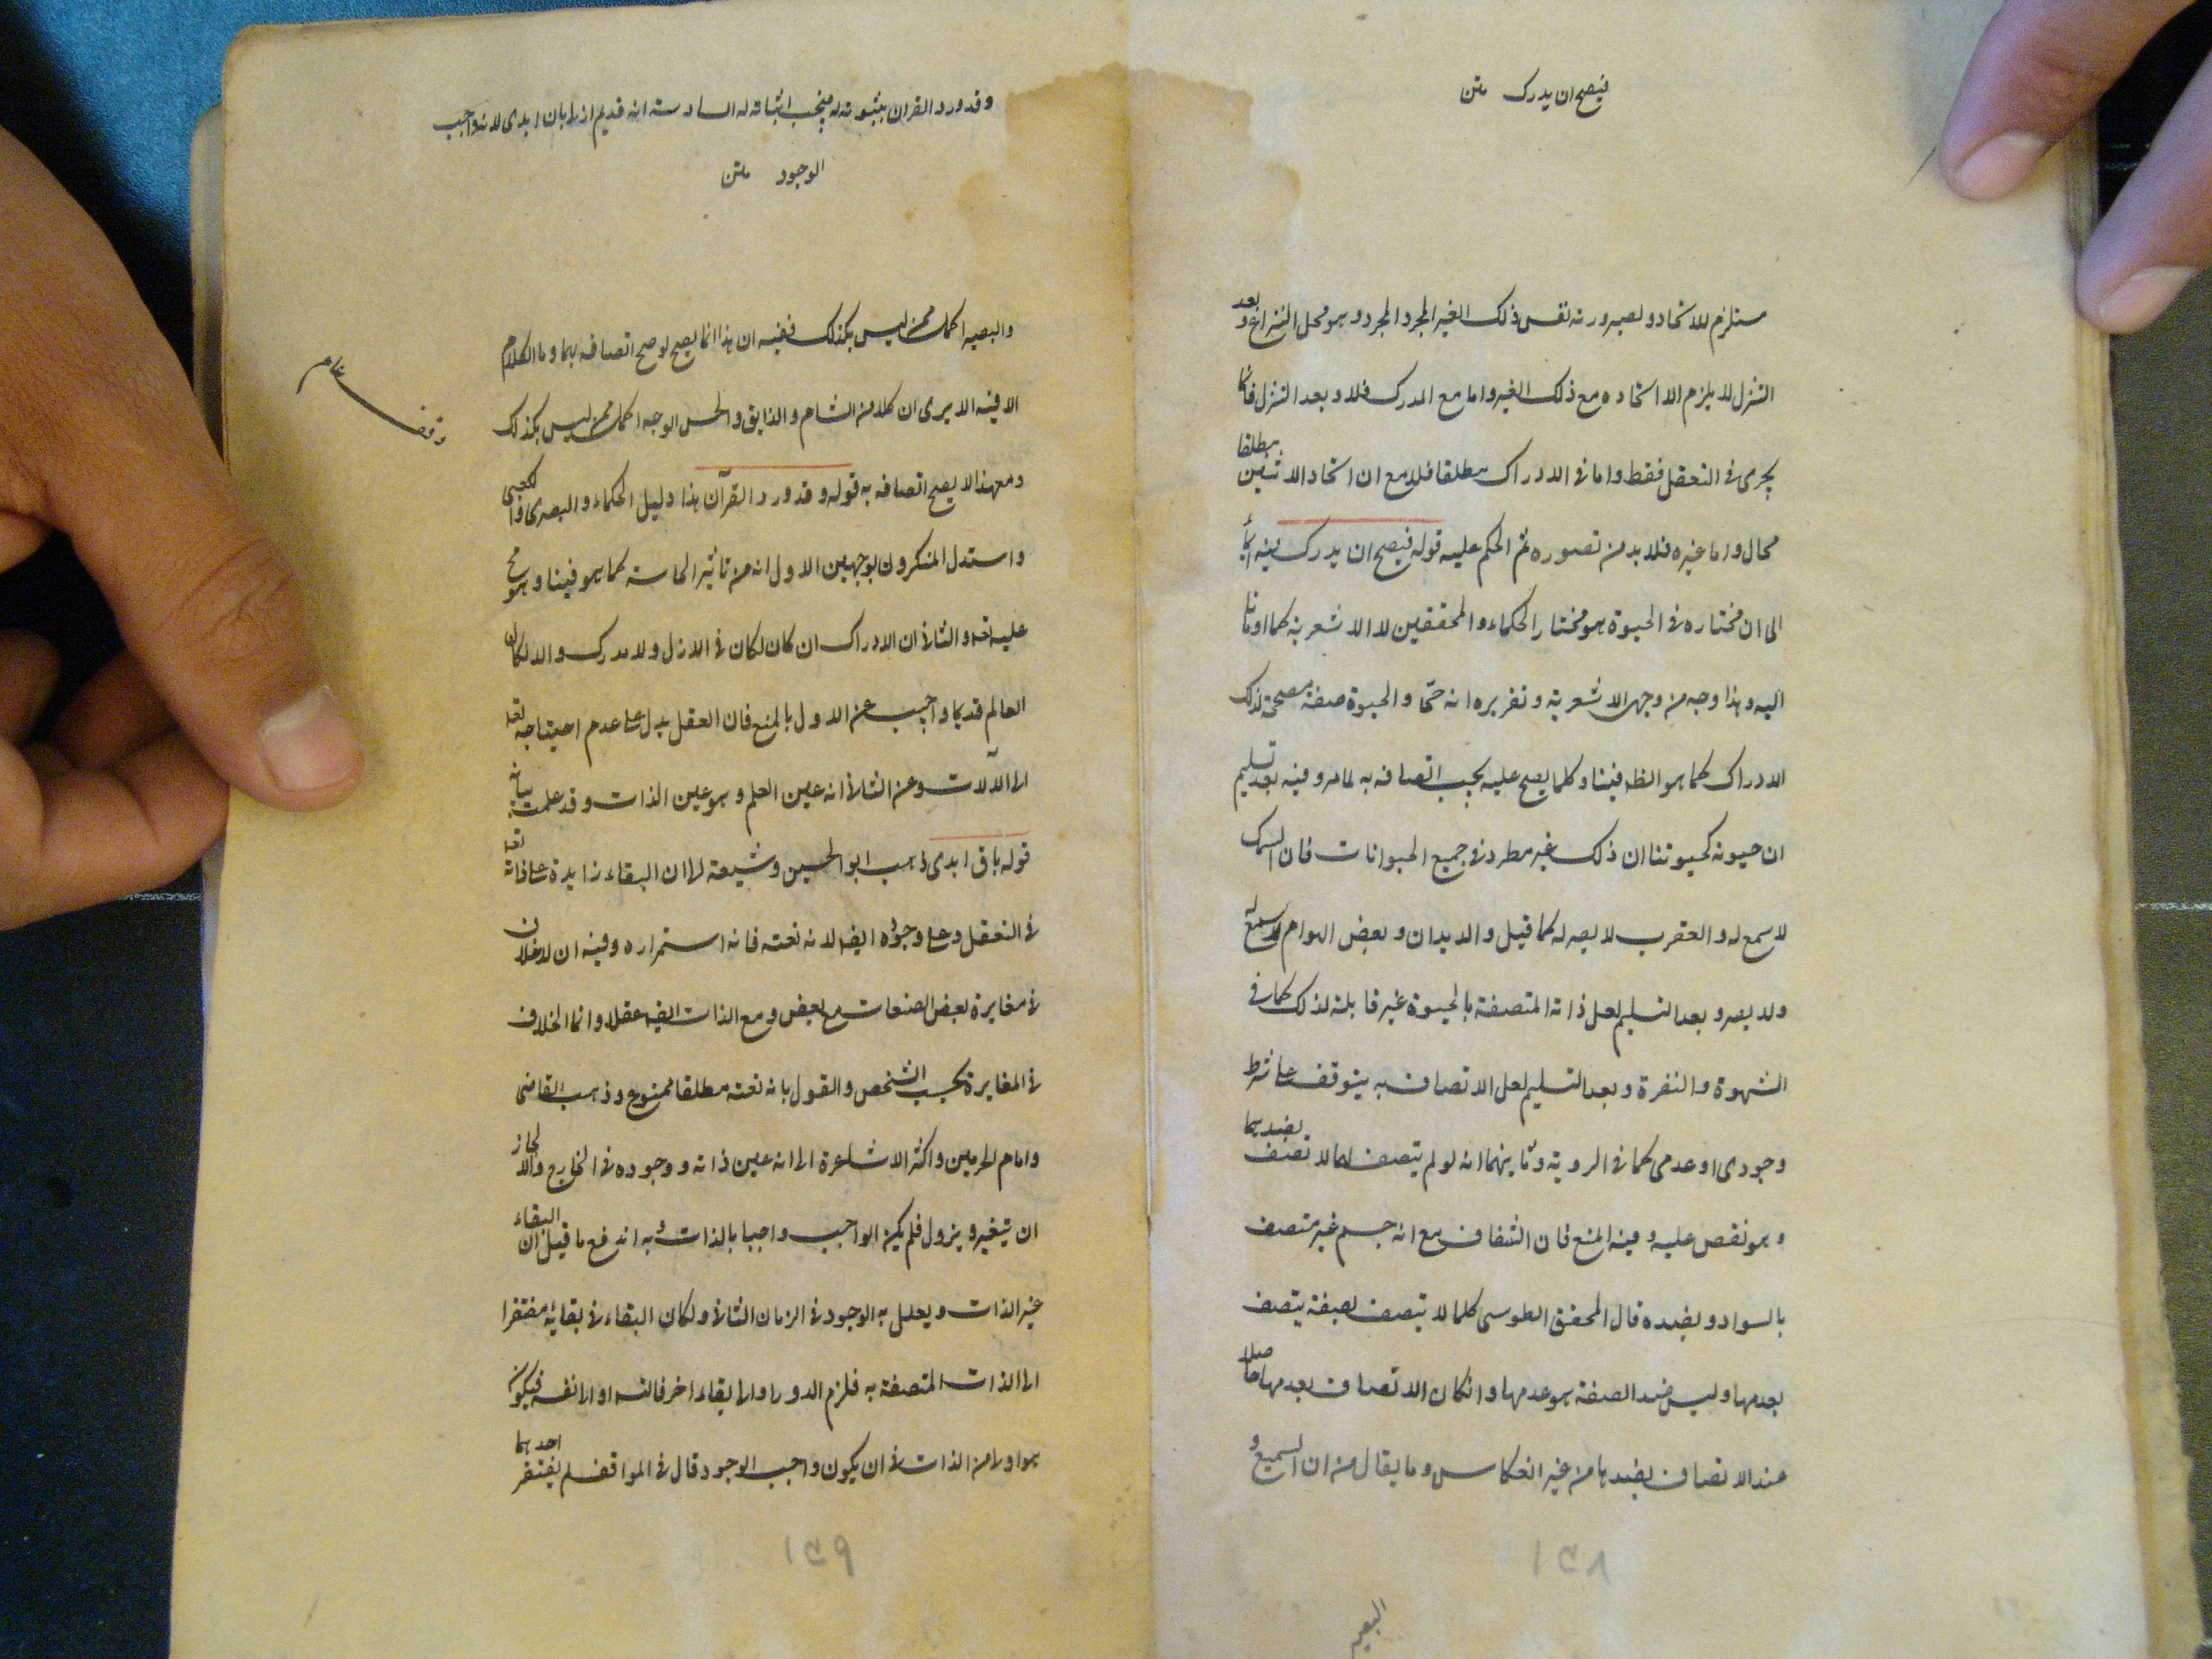 فيصح ان يدرك متن
مستلزم للاتحاد ولصيرورته نفس ذلك الغير المجرد المجرد وهو محل النزاع و بعد
التنزل لا يلزم الا اتحاده مع ذلك الغير واما مع المدرك فلا وبعد التنزل فانما
يجرى فى التعقل فقط واما فى الادراك مطلقا فلا مع ان اتحاد الاثنين مطلقا
محال واما غيره فلا بد من تصوره ثم الحكم عليه قوله فيصح ان يدرك فيه ايماء
الى ان مختاره فى الحيوة هو مختار الحكماء والمحققين لا الاشعرية كما اومانا
اليه وهذا وجه من وجهى الاشعرية وتقريره انه حى والحيوة صفة مصححة لذلك
الادراك كما هو الظ فينا وكلما يصح عليه يجب اتصافه به لما مر وفيه بعد تسليم
ان حيوته كحيوتنا ان ذلك غير مطرد فى جميع الحيوانات فان السمك
لا سمع له والعقرب لا بصر له كما قيل والديدان وبعض الهوام لا سمع له
ولا بصر وبعد التسليم لعل ذاته المتصفة بالحيوة غير قابلة لذلك كما فى
الشهوة والنفرة وبعد التسليم لعل الاتصاف به يتوقف على شرط
وجودى او عدمى كما فى الروية وثانيهما انه لو لم يتصف بهما لاتصف بضدهما
وهو نقص عليه وفيه المنع فان الشفاف مع انه جسم غير متصف
بالسواد وبضده قال المحقق الطوسى كلما لا يتصف بصفة يتصف
بعدمها وليس ضد الصفة هو عدمها وانكان الاتصاف بعدمها حاصلا
عند الاتصاف بضدها من غير انعكاس وما يقال من ان السميع و
١٥٨
البصير
وقد ورد القران بثبوته له فيجب اثباته له السادسة انه قديم ازلى باق ابدى لانه واجب
الوجود متن
والبصير اكمل ممن ليس بكذلك ففيه ان هذا انما يصح لو صح اتصافه بهما وما الكلام
الا فيه الا يرى ان كلا من الشام والذايق والحسن الوجه اكمل ممن ليس بكذلك
ومع هذا لا يصح اتصافه به قوله وقد ورد القرآن هذا دليل الحكماء والبصرى والكعبى
واستدل المنكرون بوجهين الاول انه من تاثير الحاسة كما هو فينا وهو مح
عليه تعه والثانى ان الادراك ان كان لكان فى الازل ولا مدرك والا لكان
العالم قديما واجيب عن الاول بالمنع فان العقل يدل على عدم احتياجه تعه
الى الآلات وعن الثانى انه عين العلم وهو عين الذات وقد علمت بيانه
قوله باق ابدى ذهب ابو الحسين وشيعته الى ان البقاء زايدة على ذاته تعه
فى التعقل وعلى وجوده ايضا لانه نعته فانه استمراره وفيه ان لا خلاف
فى مغايرة بعض الصفات مع بعض ومع الذات ايضا عقلا وانما الخلاف
فى المغايرة بحسب الشخص والقول بانه نعته مطلقا ممنوع وذهب القاضى
وامام الحرمين واكثر الاشاعرة الى انه عين ذاته ووجوده فى الخارج والا لجاز
ان يتغير ويزول فلم يكن الواجب واجبا بالذات وبه اندفع ما قيل ان البقاء
غير الذات ويعلل به الوجود فى الزمان الثانى ولكان البقاء فى بقائه مفتقرا
الى الذات المتصفة به فلزم الدور او الى بقاء اخر فالتسه او الى نفسه فيكون
هو اولى من الذات فى ان يكون واجب الوجود قال فى المواقف لم يفتقر احدهما
١٥٩